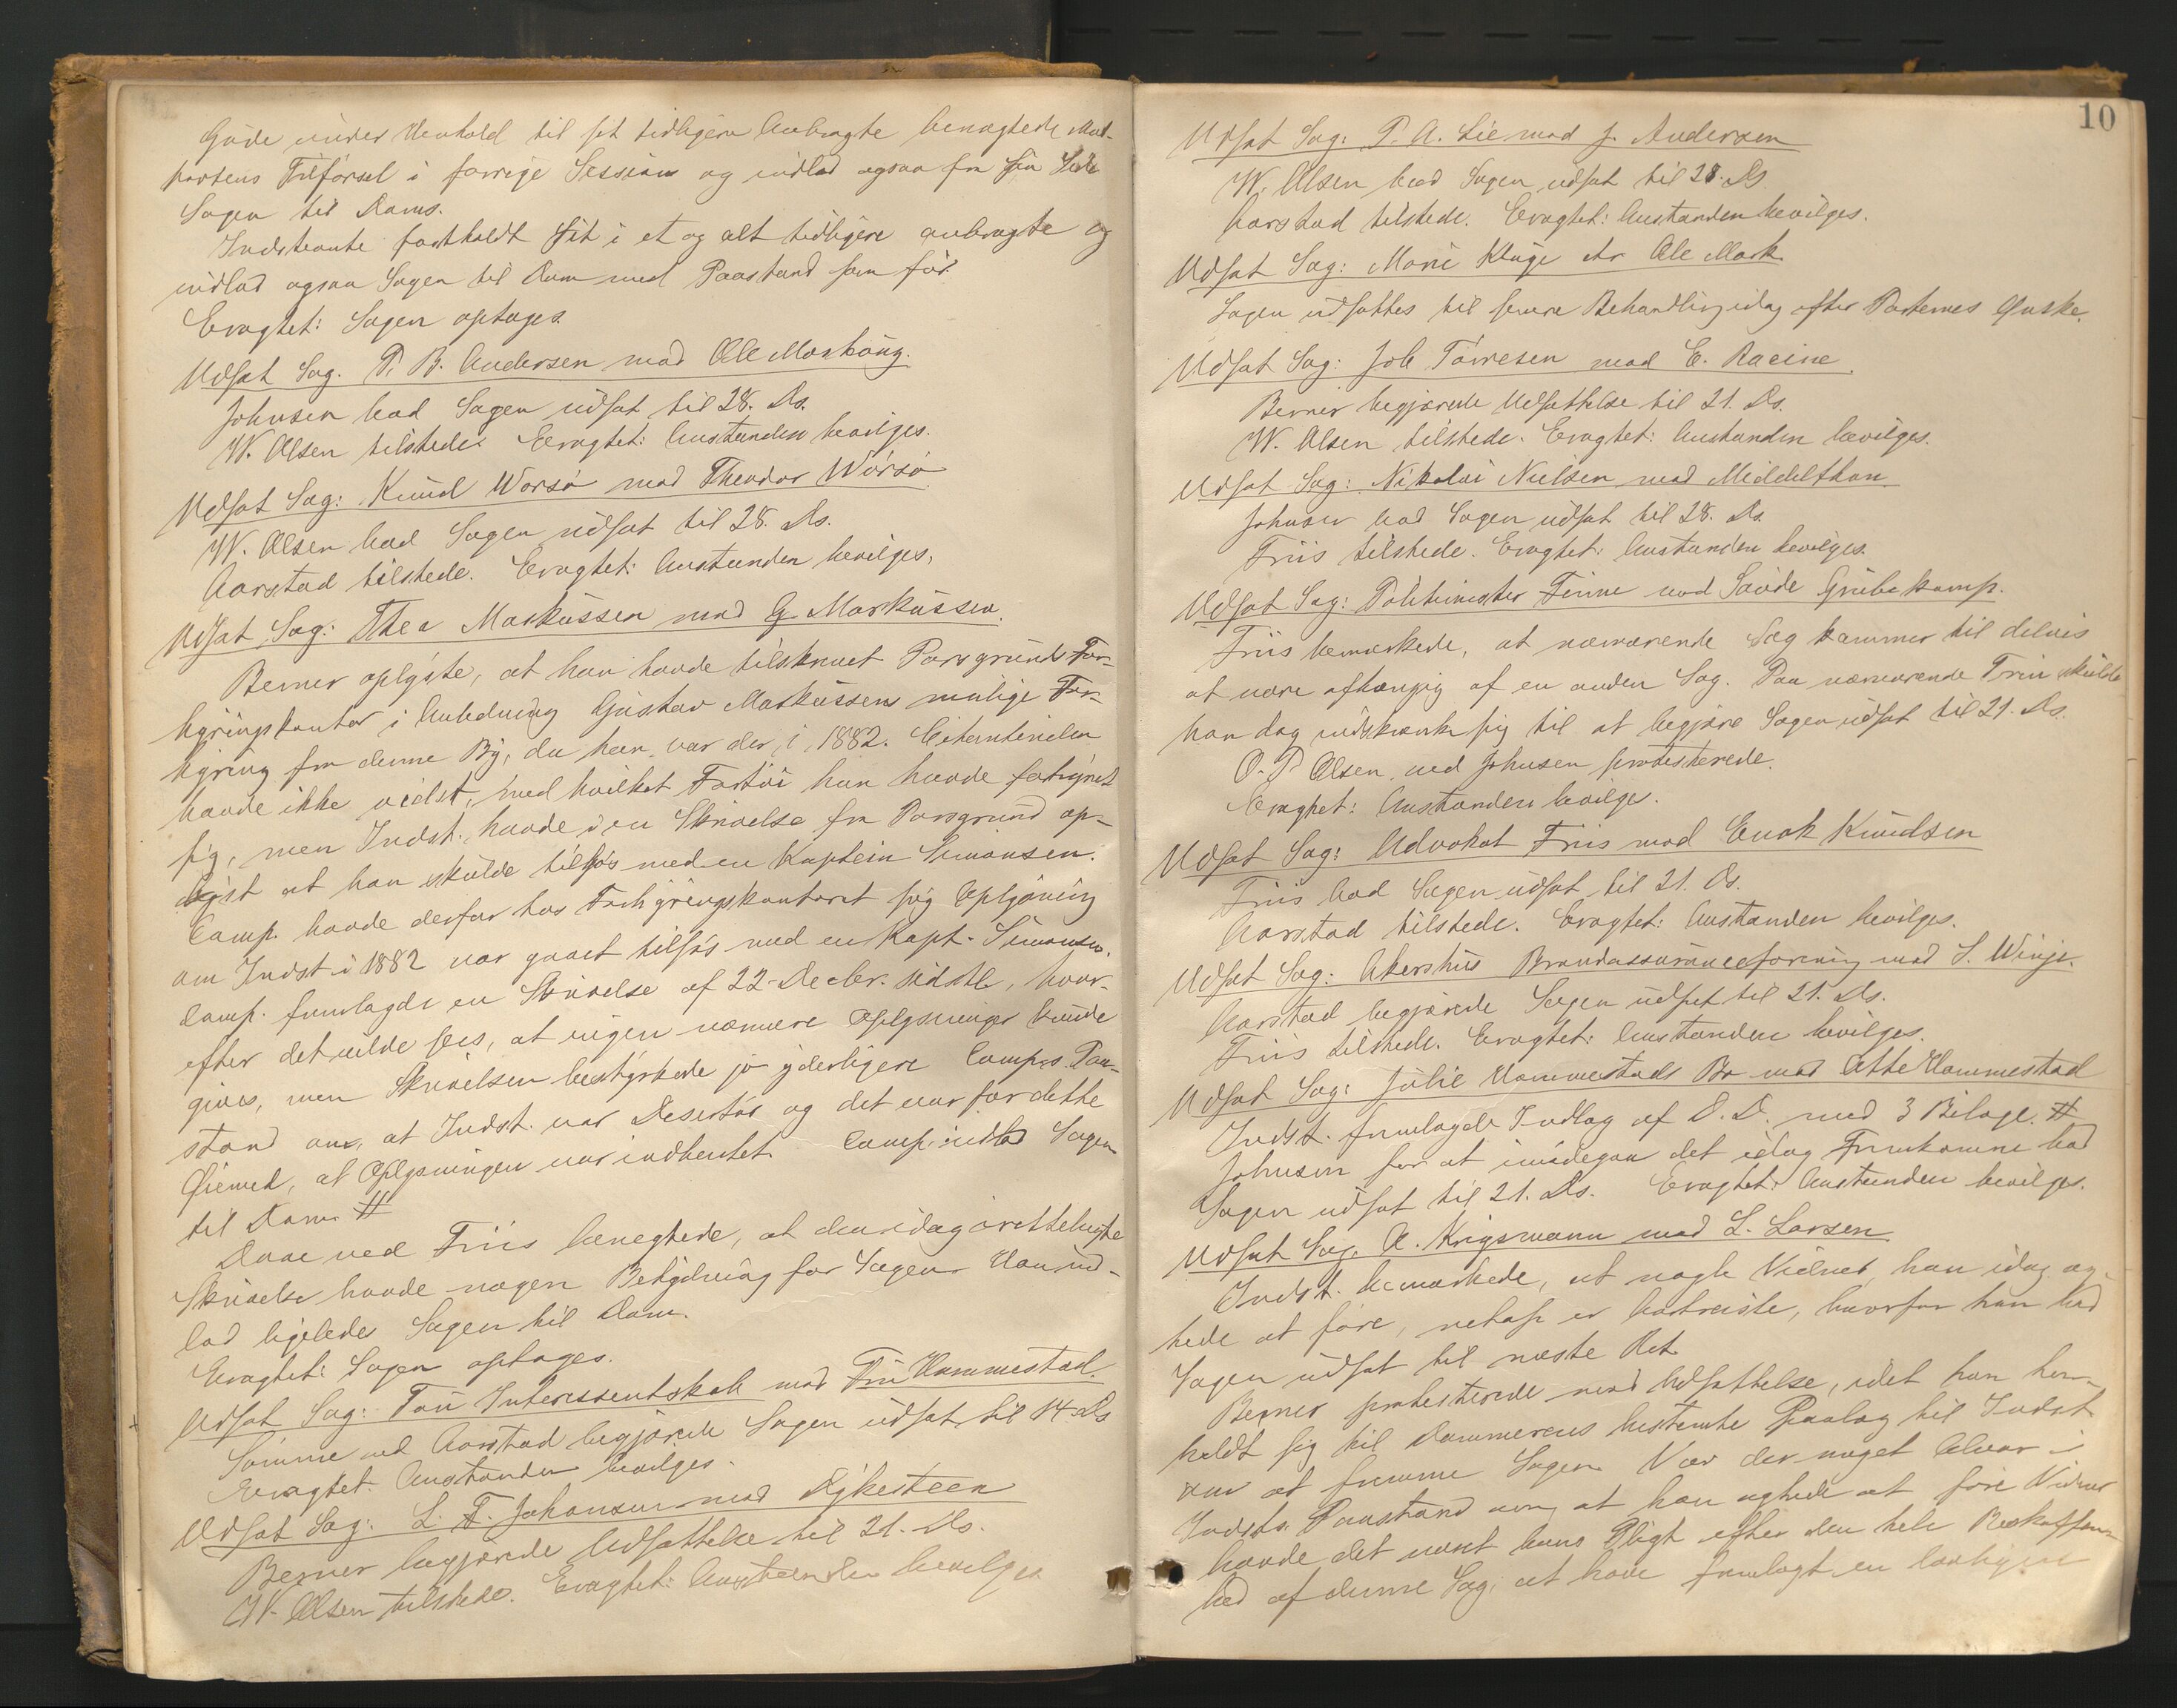 Gude under Henhold til sit tidligere Anbragte benægtede Mod-
partens Tilførsel i forrige Session og indlod ogsaa fra sin Side
Sagen til Doms.
Indstevnte fastholdt sit i et og alt tidligere anbragte og
indlod ogsaa Sagen til Dom med Paastand som før.
Eragtet: Sagen optages.
Udsat Sag. P. B. Andersen mod Ole
Johnsen bad Sagen udsat til 28. Ds.
W. Olsen tilstede. Eragtet: Anstanden bevilges.
Udsat Sag: Knud Worsö mod Theodor Worsö
W. Olsen bad Sagen udsat til 28. Ds.
Aarstad tilstede. Eragtet: Anstanden bevilges.
Udsat Sag: Thea Markussen mod G. Markussen.
Berner oplyste, at han havde tilskrevet Porsgrunds For-
hyringskontor i Anledning Gustav Markussens mulige For-
hyring fra denne By, da han var der i 1882. Citantinden
havde ikke vidst, med hvilket Fartöi han havde forhyret
sig, men Indst. havde i en Skrivelse fra Porsgrund op-
lyst at han skulde tilsøs med en Kaptein Simonsen.
Comp. havde derfor hos Forhyringskontoret søgt Oplysning
om Indst. i 1882 var gaaet tilsøs med en Kapt. Simonsen.
Comp. fremlagde en Skrivelse af 22 Decbr. sidstl., hvor-
efter det vilde sees, at ingen nærmere Oplysninger kunde
gives, men Skrivelsen bestyrkede jo yderligere Comps. Paa-
stand om, at Indst. var Desertör og det var for dette
Øiemed, at Oplysningen var indhentet. Comp. indlod Sagen
til Dom #
Daae ved Friis benegtede, at den idag irettelagte
Skrivelse havde nogen Betydning for Sagen. Han ind-
lod ligeledes Sagen til Dom.
Eragtet: Sagen optages.
Udsat Sag: Tou Interessentskab mod Fru Hammestad.
Sömme ved Aarstad begjærede Sagen udsat til 14 Ds
Eragtet: Anstanden bevilges.
Udsat Sag: L. F. Johansen mod Dykesteen
Berner begjærede Udsættelse til 21. Ds.
W. Olsen tilstede. Eragtet: Anstanden bevilges
10
Udsat Sag: P. A. Lie mod J. Andersen
W. Olsen bad Sagen udsat til 28. Ds.
Aarstad tilstede. Eragtet: Anstanden bevilges.
Udsat Sag: Marie Kluge ctr Ole Mork.
Sagen udsættes til senere Behandling idag efter Parternes Ønske.
Udsat Sag: Job Törresen mod E. Racine.
Berner begjærede Udsættelse til 21. Ds.
W. Olsen tilstede. Eragtet: Anstanden bevilges.
Udsat Sag: Nikolai Nielsen mod Middelthon
Johnsen bad Sagen udsat til 28. Ds.
Friis tilstede. Eragtet: Anstanden bevilges.
Udsat Sag: Politimester Finne mod Saude Grubekomp.
Friis bemærkede, at nærværende Sag kommer til delvis
at være afhængig af en anden Sag. Paa nærværende Trin skulde
han dog indskrænke sig til at begjære Sagen udsat til 21. Ds.
O. P. Olsen ved Johnsen protesterede.
Eragtet: Anstanden bevilges.
Udsat Sag: Advokat Friis mod Enok Knudsen
Friis bad Sagen udsat til 21. Ds.
Aarstad tilstede. Eragtet: Anstanden bevilges.
Udsat Sag: Akershus Brandassuranceforening mod S. Winje.
Aarstad begjærede Sagen udsat til 21. Ds.
Friis tilstede. Eragtet: Anstanden bevilges.
Udsat Sag: Julie Hammestads Bo mod Atte Hammestad
Indst. fremlagde Indlæg af D. D. med 3 Bilage. #
Johnsen for at imødegaa det idag Fremkomne bad
Sagen udsat til 21. Ds. Eragtet: Anstanden bevilges.
Udsat Sag. A. Krigsmann mod L. Larsen.
Indst. bemærkede, at nogle Vidner, han idag ag-
tede at føre, netop er bortreiste, hvorfor han bad
Sagen udsat til næste Ret.
Berner protesterede mod Udsættelse, idet han hen-
holdt sig til Dommerens bestemte Paalæg til Indst
om at fremme Sagen. Var der noget Alvor i
Indsts. Paastand om, at han agtede at føre Vidner
havde det været hans Pligt efter den hele Beskaffen-
hed af denne Sag, at have fremlagt en lovligere